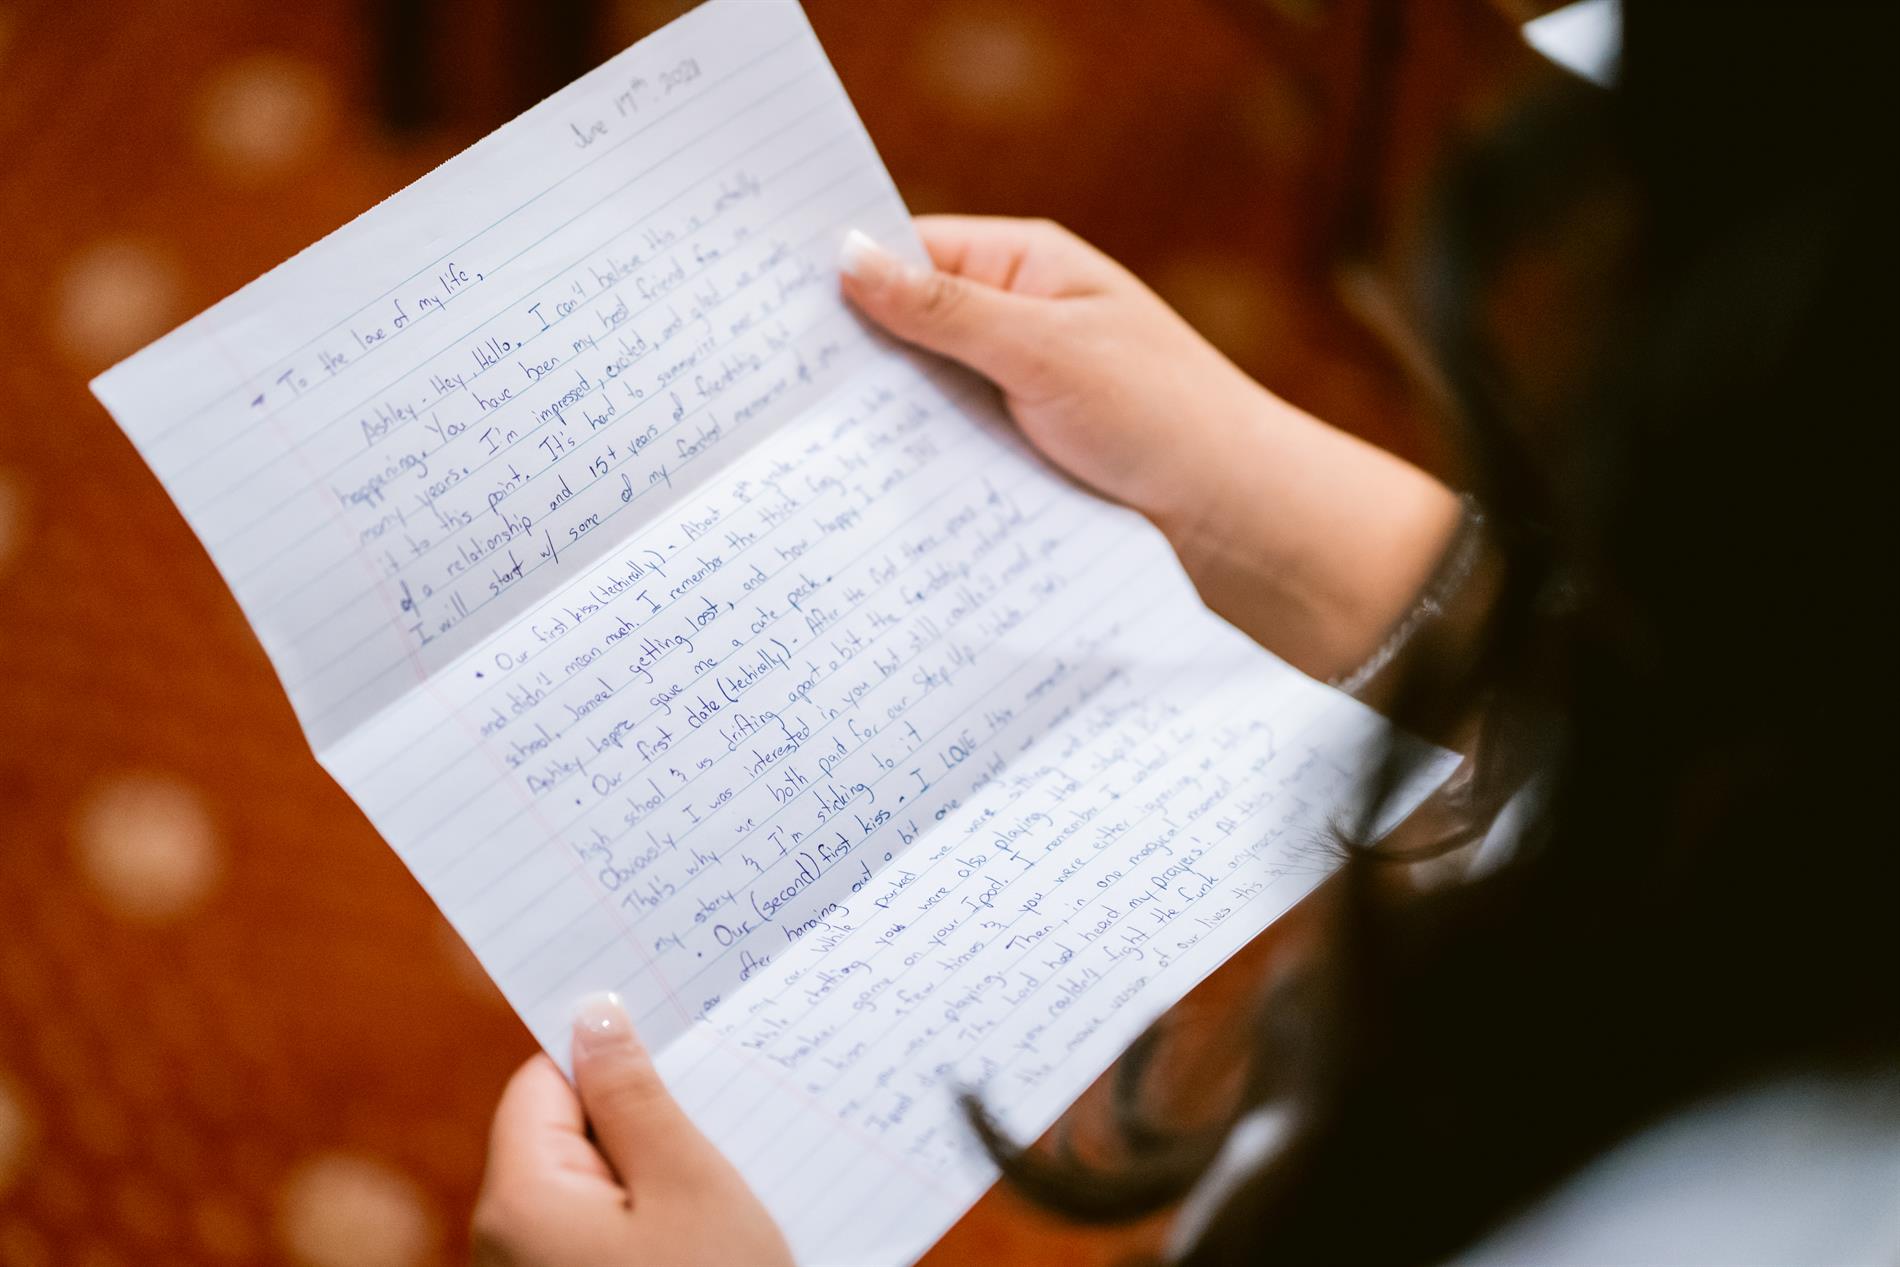 June 17th, 2021
To the love of my life,
Ashley - Hey. Hello. I can't believe this is actually
happening. You have been my best friend for so
many years. I'm impressed, excited, and glad we made
it to this point. It's hard to summarize over a decade
of a relationship and 15+ years of friendship but
I will start w/ some of my fondest memories of you
• Our first kiss (techically) - About 8th grade, we were kids
and didn't mean much. I remember the thick fog by the middle
school, Jameel getting lost, and how happy I was THE
Ashley Lopez gave me a cute peck.
• Our first date (techically) - After the first three years of
high school & us drifting apart a bit, the friendship rekindled
Obviously I was interested in you but still couldn't read you
That's why we both paid for our Step Up date
my story & I'm sticking to it
• Our (second) first kiss - I LOVE this moment.
after hanging out a bit one night
year
in my car. While parked we were sitting and chatting
While chatting you were also playing that stupid brick
breaker game on your Ipod. I remember I asked for
a kiss a few times & you were either ignoring or
me you were playing. Then, in one magical moment - your
Ipod The Lord had heard my prayers! At this moment
you couldn't fight the funk anymore and
the movie version of our lives this is